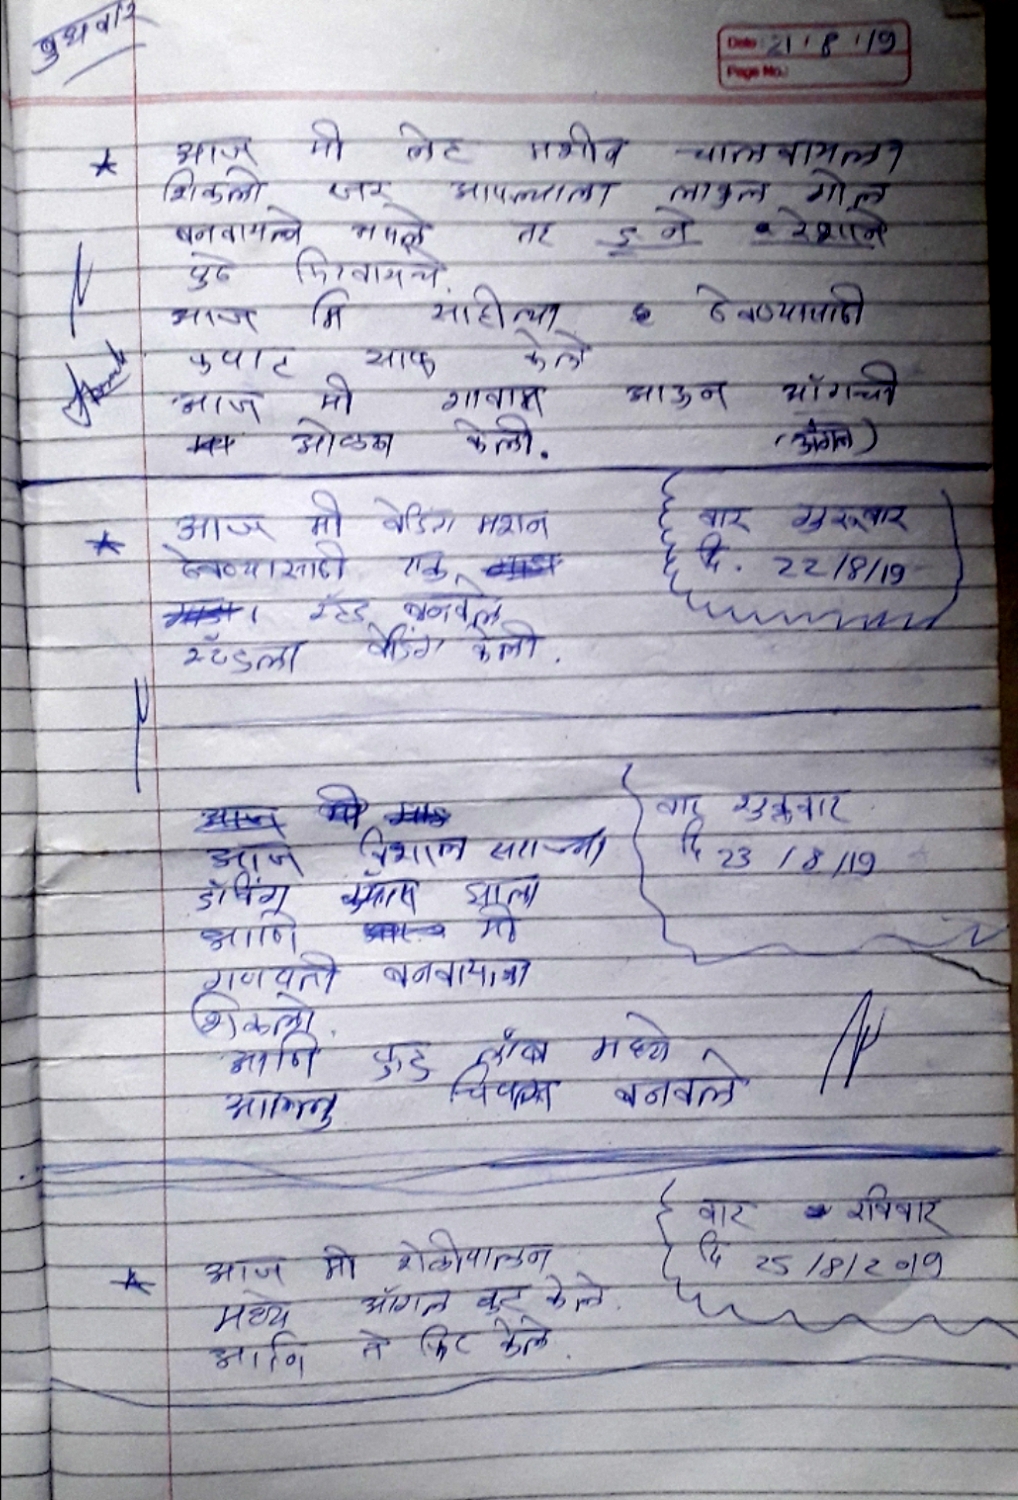 बुधवार
Date: 21 / 8 / 19
Page No.
आज मी लेट मशीन चालवायला
शिकलो जर आपल्याला लाकुल गोल
बनवायचे असले तर इ ने रेशाने
पुढे फिरवायचे.
आज मि साहीत्या ठेवण्यासाठी
कपाट साफ केले
आज मी गावात जाऊन ऑगलची
ओळख केली. (अँगल)
आज मी वेडिंग मशन
ठेवण्यासाठी एक
स्टँड बनवले
स्टँडला वेडिंग केली.
वार गुरूवार
दि. 22/8/19
वार शुक्रवार
दि 23 / 8 /19
आज विशाल सराच्या
झाला
आणि मी
गणपती बनवायला
शिकलो.
आणि फुड लॅब मध्ये
बनवले
वार रविवार
दि 25/8/2019
आज मी शेळीपालन
मध्ये ऑगल कट केले.
आणि ते फिट केले.